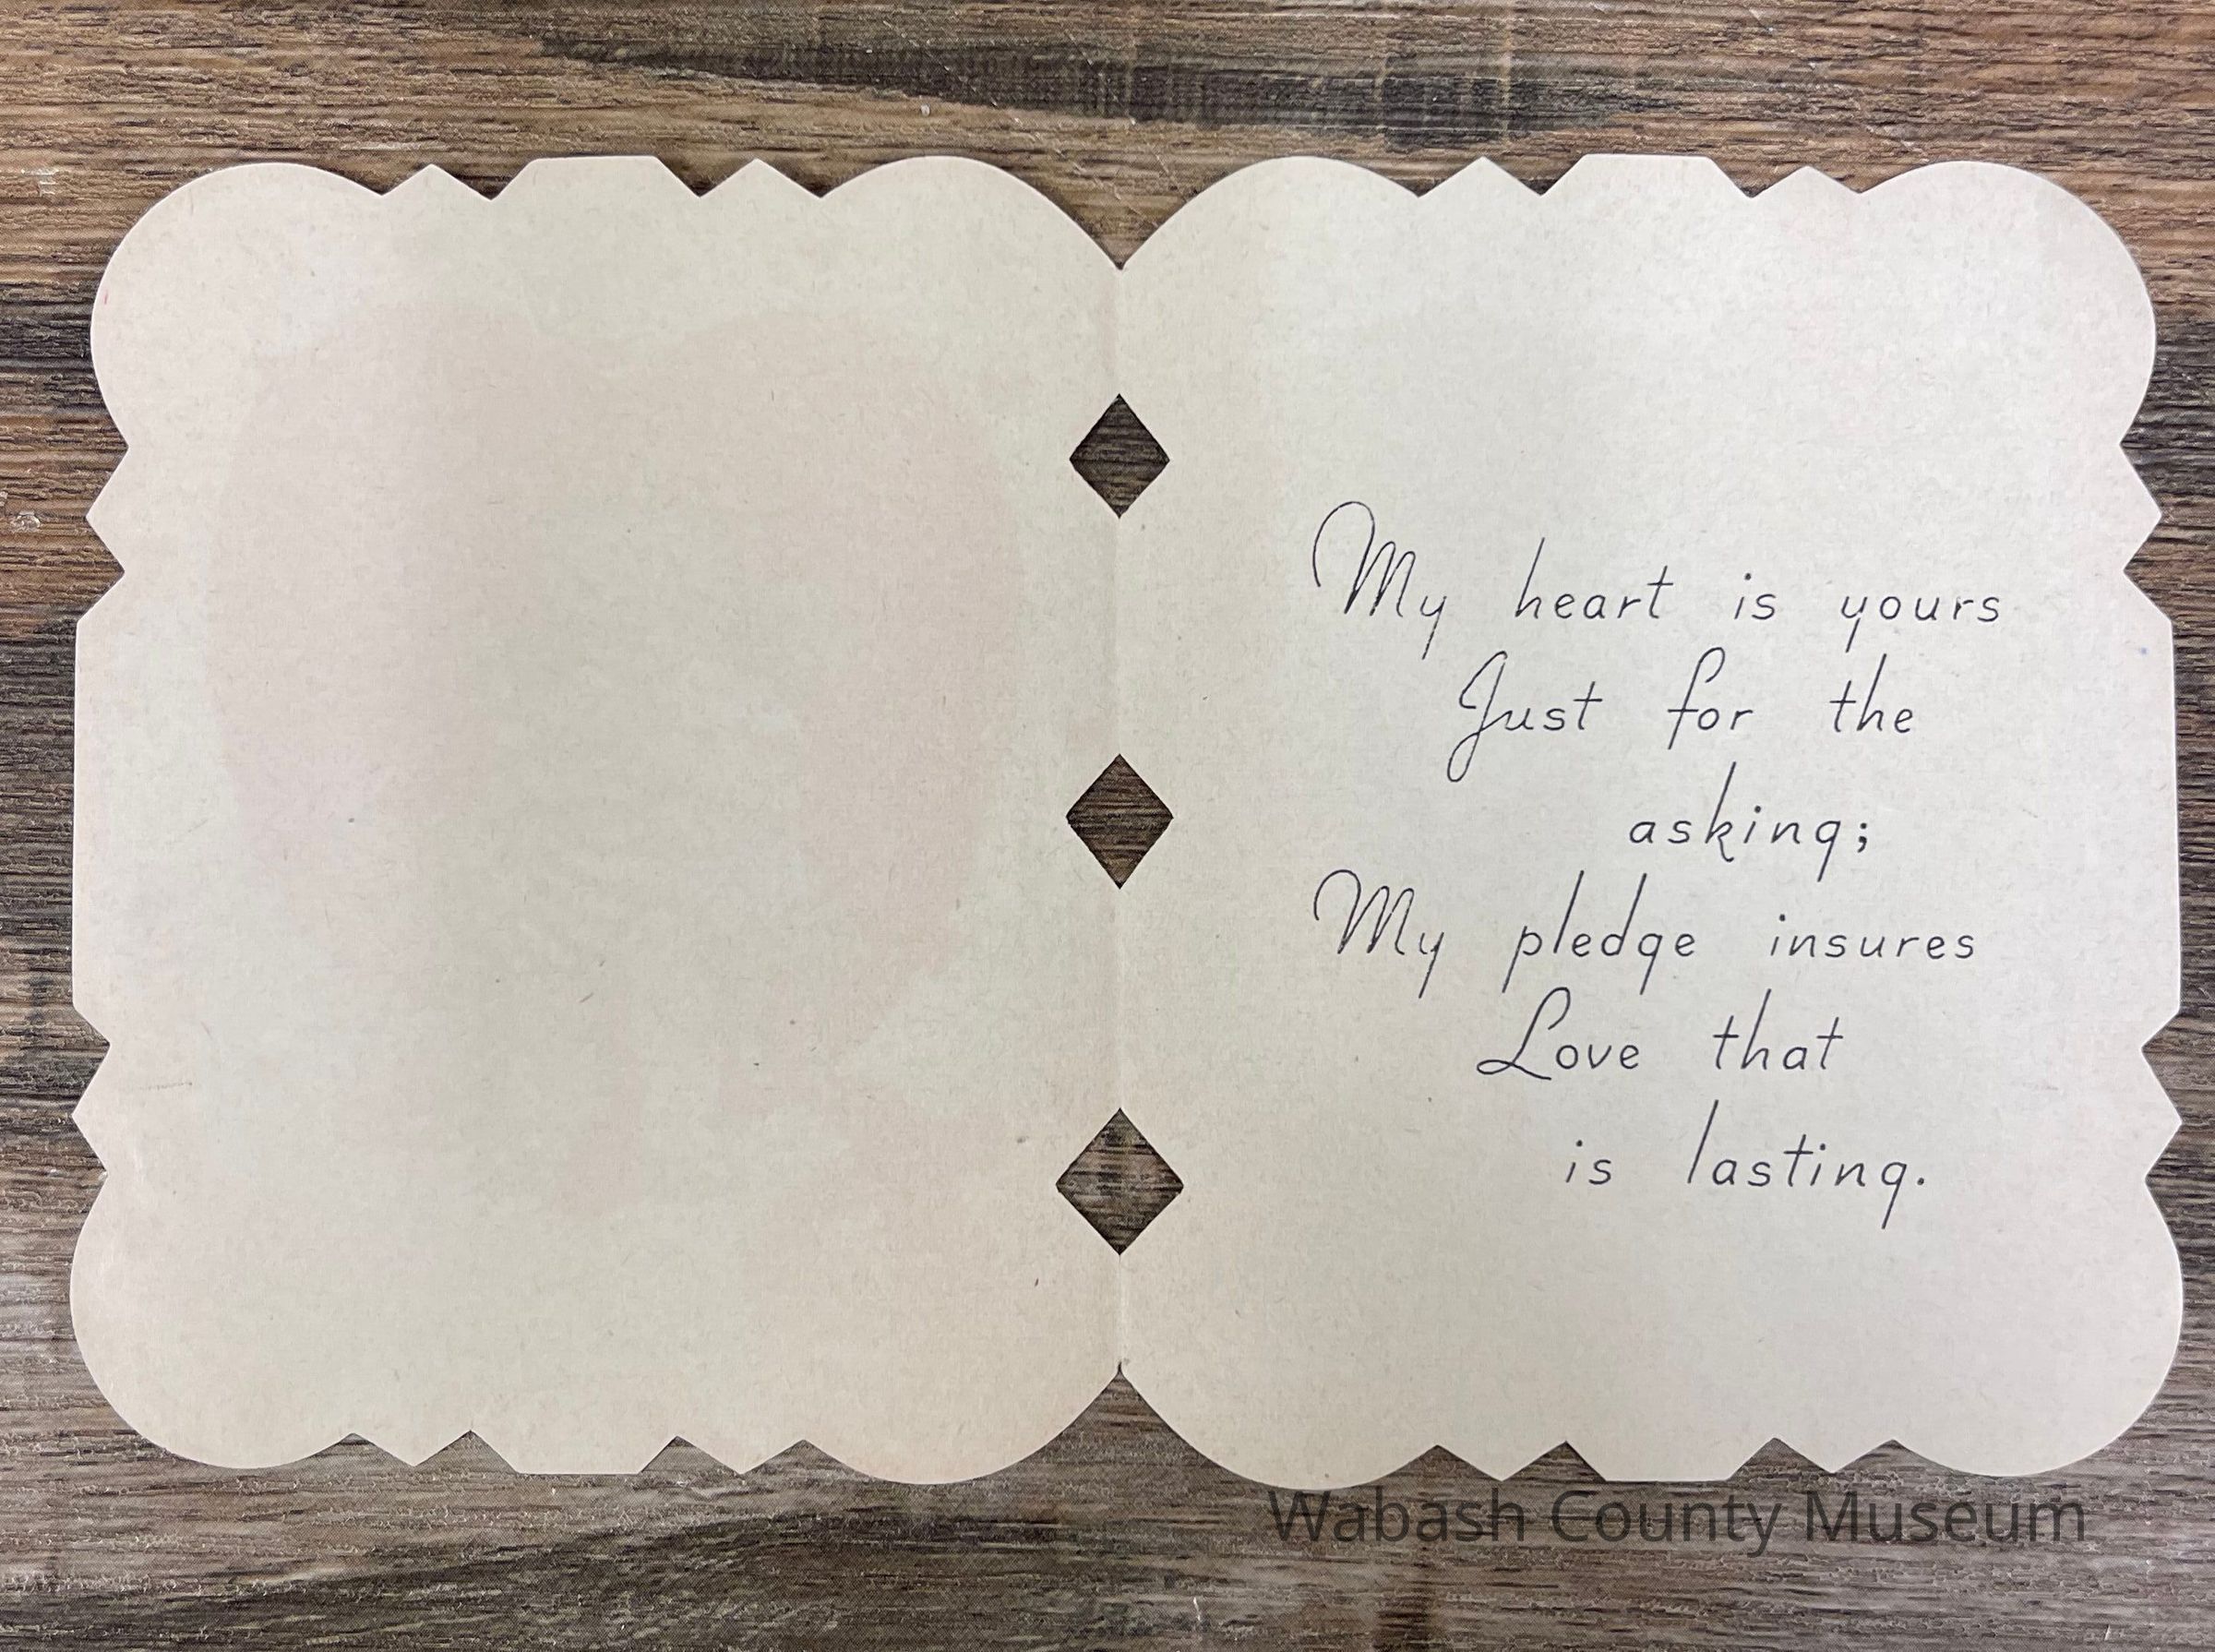 My heart is yours
Just for the
asking;
My pledge insures
Love that
is lasting.
Wabash County Museum